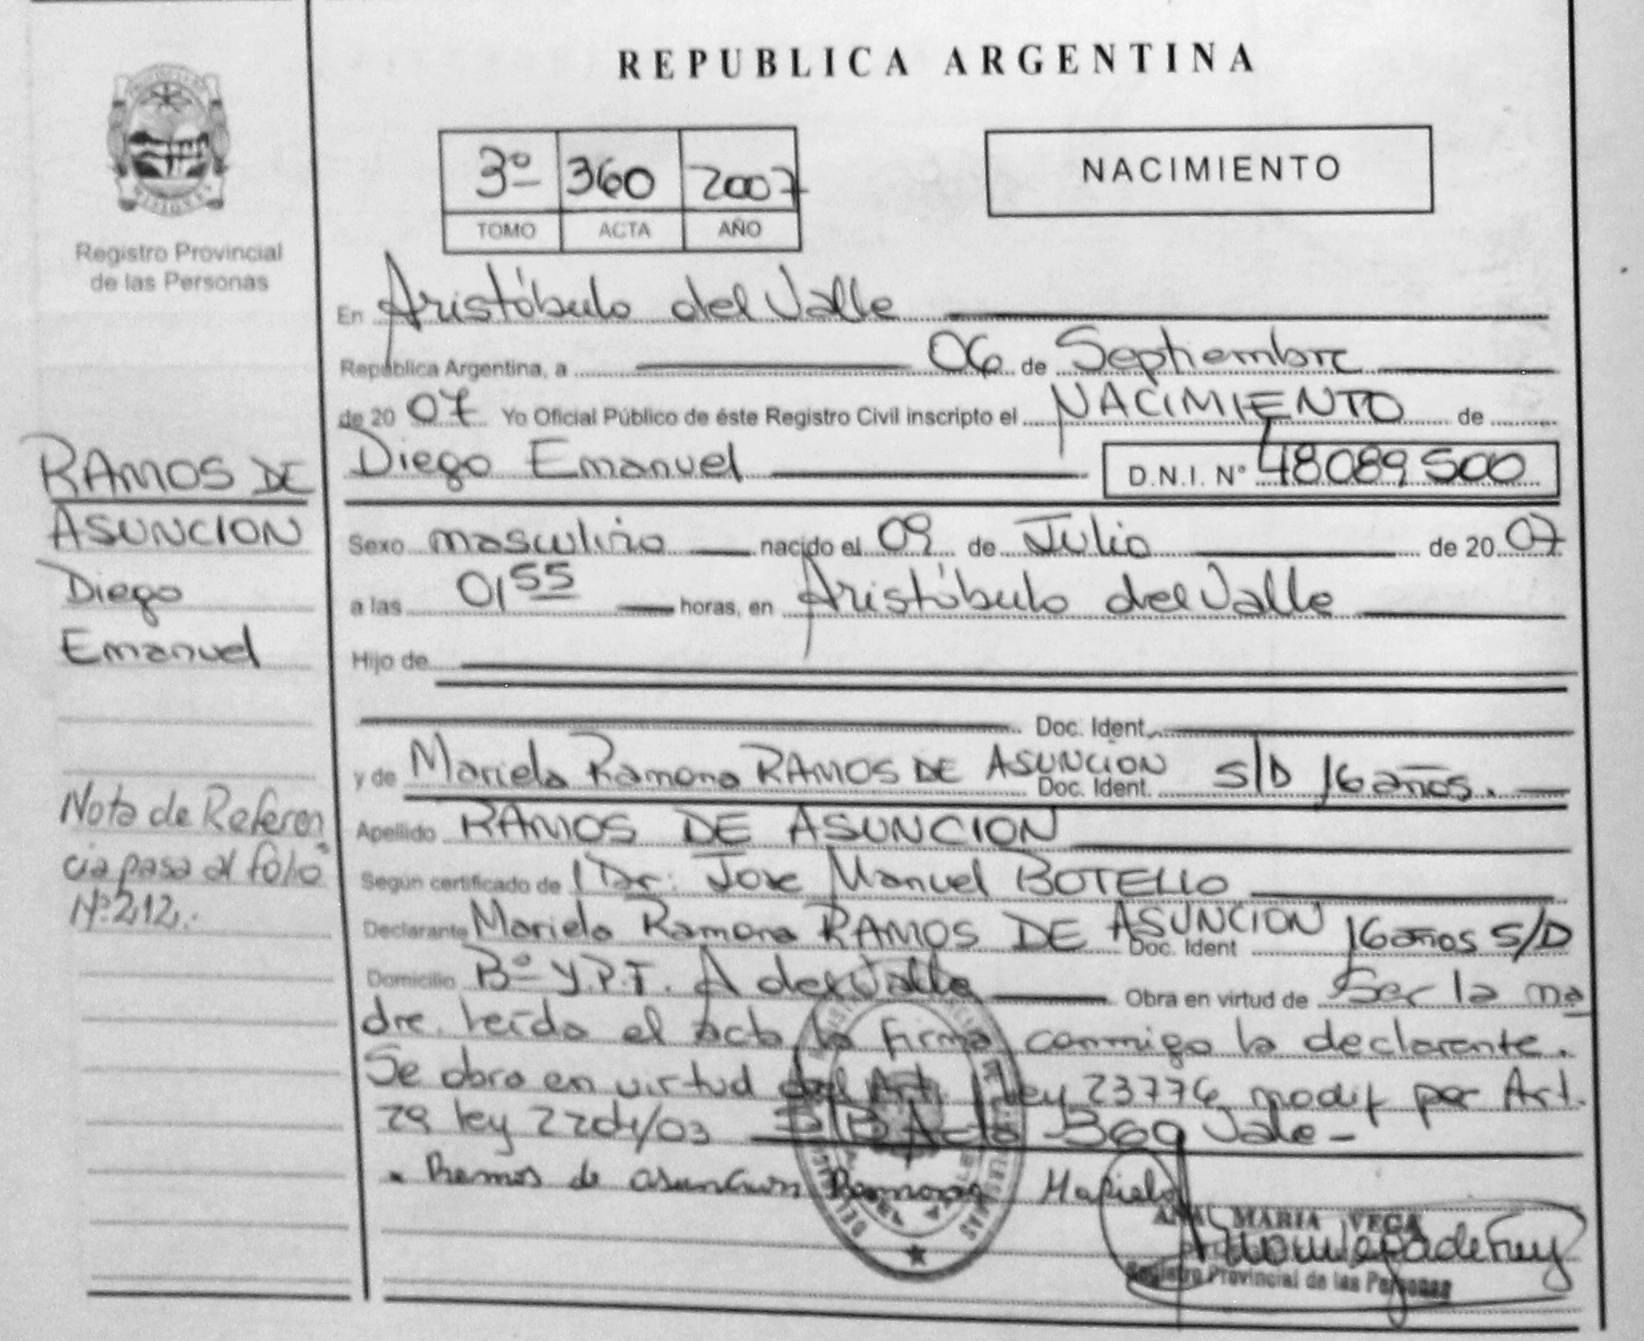 REPUBLICA ARGENTINA
3º 360 2007
TOMO ACTA AÑO
NACIMIENTO
Registro Provincial
de las Personas
En Aristóbulo del Valle
República Argentina, a 06 de Septiembre
de 20 07 Yo Oficial Público de éste Registro Civil inscripto el NACIMIENTO de
Diego Emanuel D.N.I. Nº 48089500
Sexo masculino nacido el 09 de Julio de 20 07
a las 01 55 horas, en Aristóbulo del Valle
Hijo de
Doc. Ident.
y de Mariela Ramona RAMOS DE ASUNCION Doc. Ident. S/D 16 años.
Apellido RAMOS DE ASUNCION
Según certificado de l Dr. Jose Manuel BOTELLO
Declarante Mariela Ramona RAMOS DE ASUNCION Doc. Ident 16 años S/D
Domicilio Bº Y.P.F. A del Valle Obra en virtud de Ser la ma
dre. leída el acta la firma conmigo la declarante.
Se obra en virtud del Art. 1 ley 23776 modif por Art.
29 ley 2204/03 Acta 360 Vale-
Ramos de asuncion Ramona Mariela
ANA MARIA VEGA
Registro Provincial de las Personas
RAMOS DE
ASUNCION
Diego
Emanuel
Nota de Referen
cia pasa al folio
Nº 212.